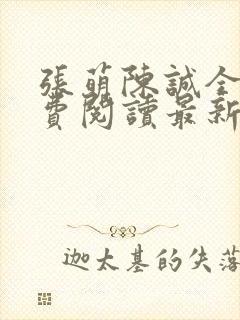 張萌陳誠全
費閱讀最新
迦太基的失落